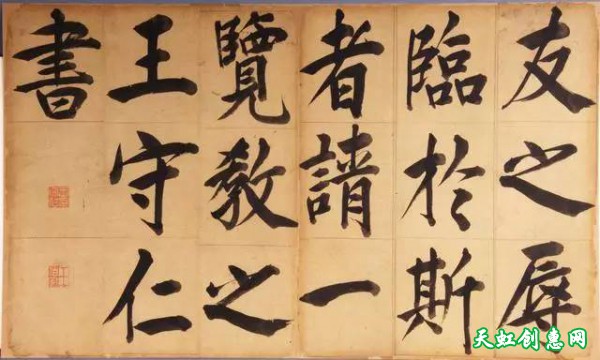 友之辱
臨於斯
者請一
覽教之
王守仁
書
天虹创惠网